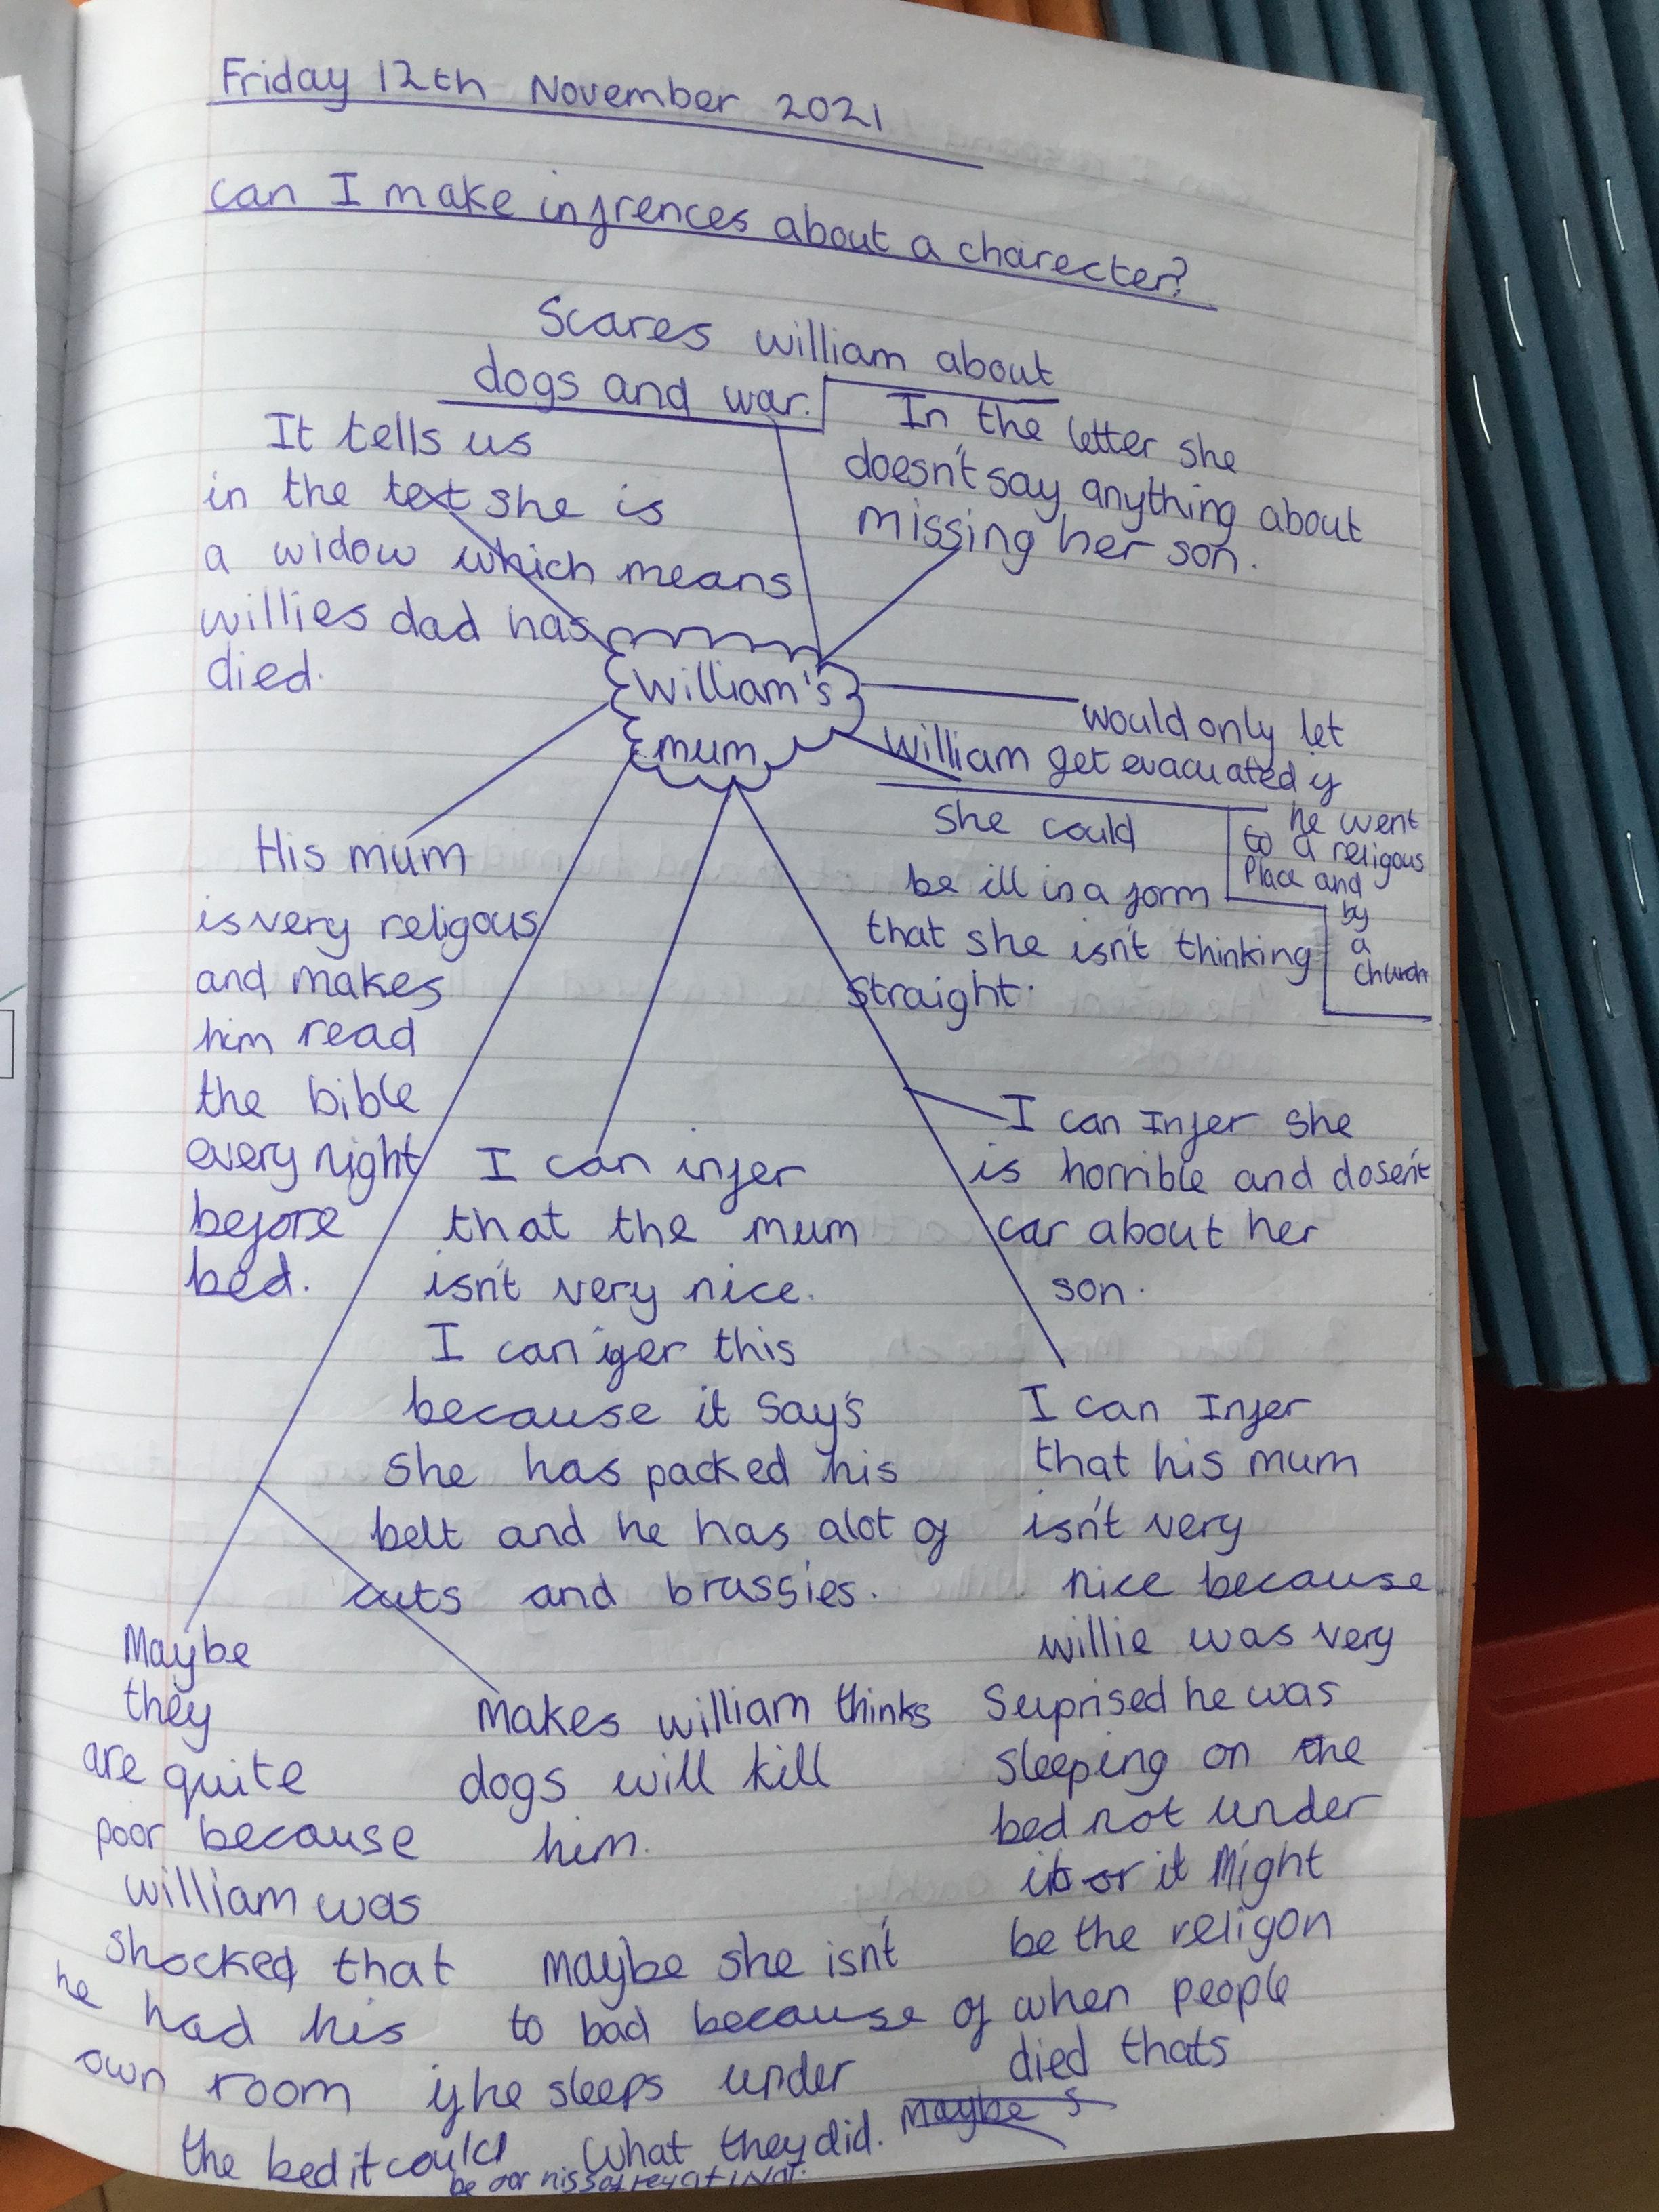 Friday 12th November 2021
can I make infrences about a charecter?
Scares william about
dogs and war.
It tells us
in the text she is
a widow which means
willies dad has
died.
In the letter she
doesn't say anything about
missing her son.
William's
mum
would only let
william get evacuated if
he went
to a religous
Place and
by
a
church
she could
be ill in a form
that she isn't thinking
straight.
His mum
is very religous
and makes
him read
the bible
every night
before
bed.
I can infer
that the mum
isn't very nice.
I can ifer this
because it say's
she has packed his
belt and he has alot of
cuts and brassies.
I can Infer she
is horrible and dosen't
car about her
son.
I can Infer
that his mum
isn't very
nice because
willie was very
Suprised he was
sleeping on the
bed not under
it or it Might
be the religon
of when people
died thats
what they did. maybe
Maybe
they
are quite
poor because
william was
shocked that
he had his
own room
Makes william thinks
dogs will kill
him.
maybe she isn't
to bad because
if he sleeps under
the bed it could
be for his